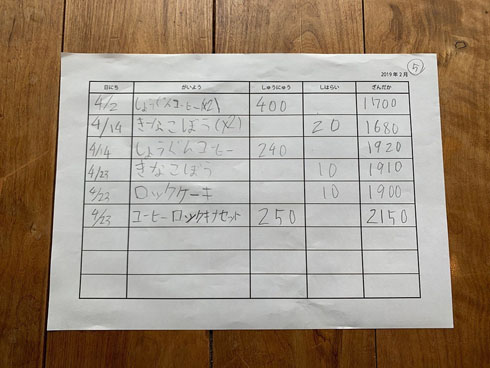 2019年2月 ⑤
日にち がいよう しゅうにゅう しはらい ざんだか
4/2 しょうぐんコーヒー(x2) 400 1700
4/14 きなこぼう(x2) 20 1680
4/14 しょうぐんコーヒー 240 1920
4/23 きなこぼう 10 1910
4/23 ロックケーキ 10 1900
4/23 コーヒーロックキナセット 250 2150